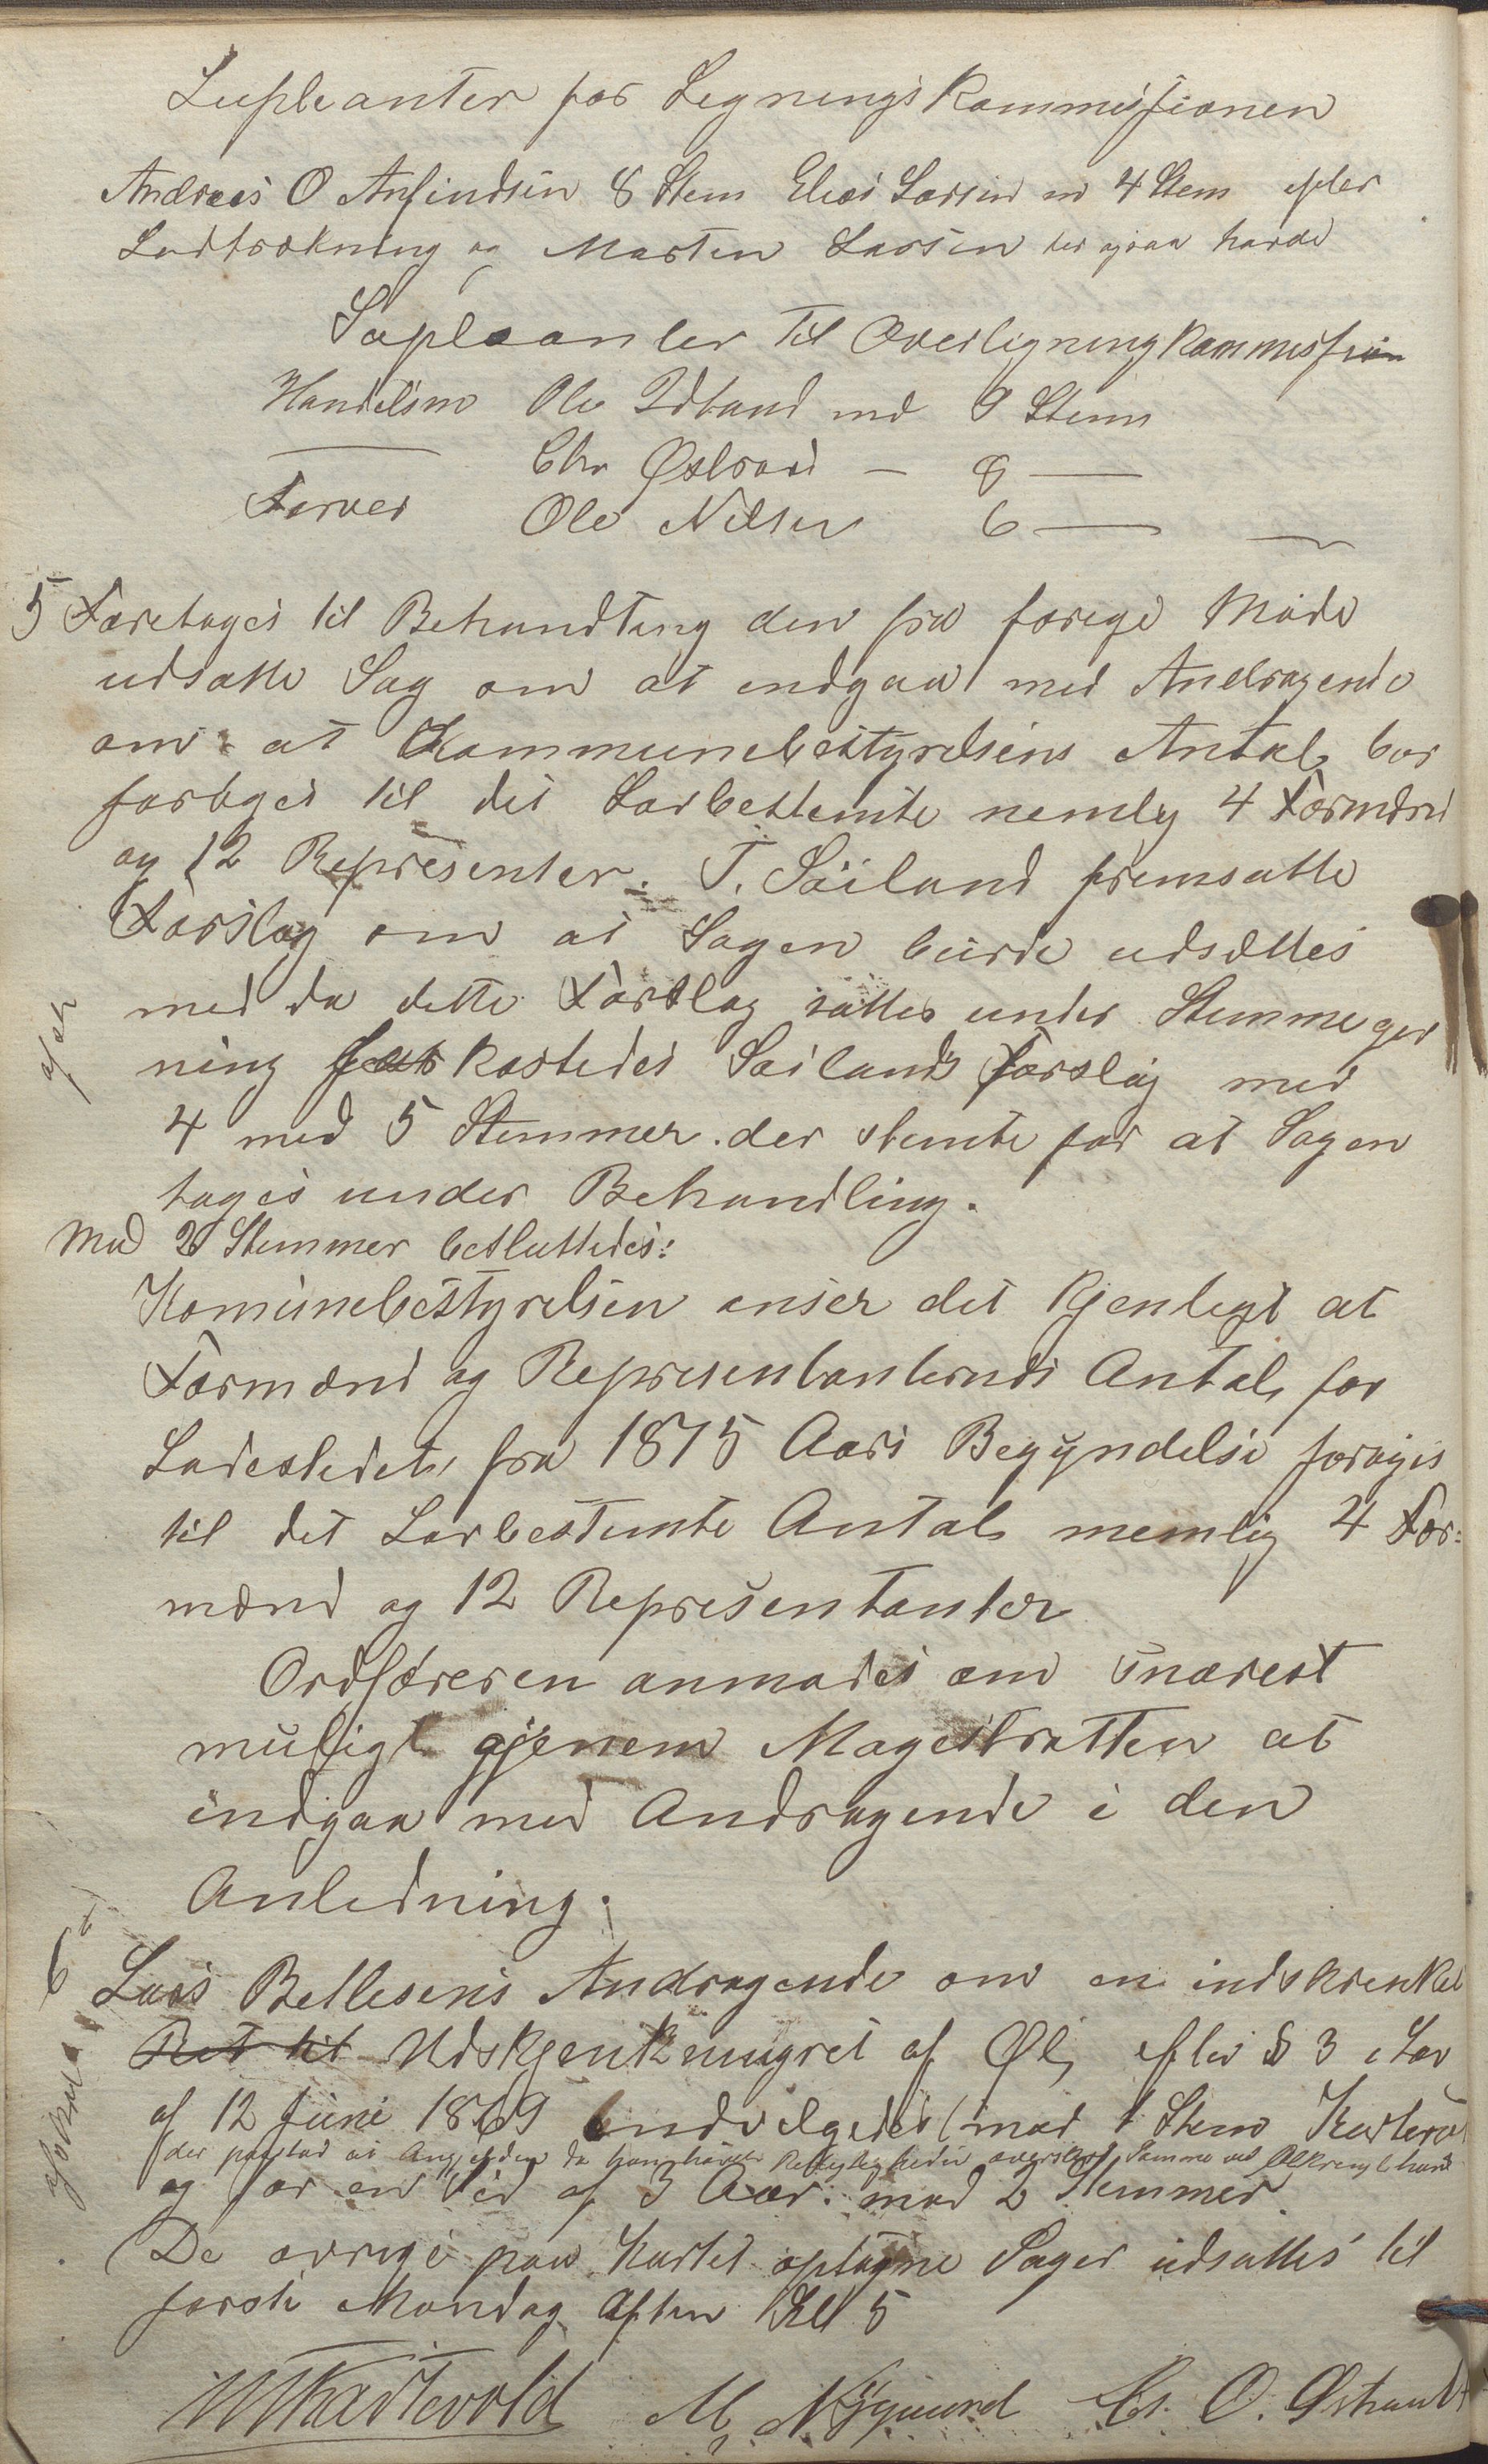 Supleanter for Lignings Kommissionen
Andreas O Anfindsen 8 Stem Elias Larsen m 4 Stem efter
Lodtrækning og Morten Larsen der ogsaa havde
Supleanter til Overligningkommission
Handelsm Ole Idland med 9 Stem
Chr Østraad — 8 —
Farver Ole Nilsen 6 —
5 Foretages til Behandling den fra forrige Møde
udsatte Sag om at indgaa med Andragende
om at Kommunebestyrelsens Antal bør
forøges til det Lovbestemte nemlig 4 Formænd
og 12 Representer. T. Sæland fremsatte
Forslag om at Sagen burde udsættes
med da dette Forslag sattes under Stemmegiv
ning forkastedes Sælands Forslag med
4 mod 5 Stemmer der stemte for at Sagen
tages under Behandling.
Mod 2 Stemmer besluttedes:
Komunebestyrelsen anser det Kjenligt at
Formænd og Representanternes Antal for
Ladestedet, fra 1875 Aars Begyndelse forøges
til det Lovbestemte Antal nemlig 4 For:
mænd og 12 Representanter
Ordføreren anmodes om snarest
muligt gjenem Magistratten at
indgaa med Andragende i den
Anledning.
6 Lars Bellesens Andragende om en indskrenket
Ret til Udskjenkningsret af Øl, efter § 3 i Lov
af 12 Juni 1869 indvilgedes (mod 1 Stem Kartevold
der paastod at da han havde Rettigheden Samme ved
og for en Tid af 3 Aar. mod 2 Stemmer
De øvrige paa Kartet optagne Sager udsattes til
første Mandag Aften Kl 5
Kartevold M. Nygaard Chr. O. Østraadt